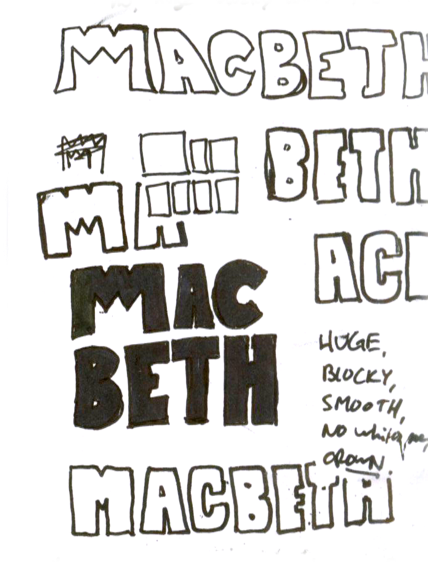 MACBETH
BETH
MA
MAC
BETH
AC
HUGE,
BLOCKY,
SMOOTH,
NO white,
CROWN.
MACBETH